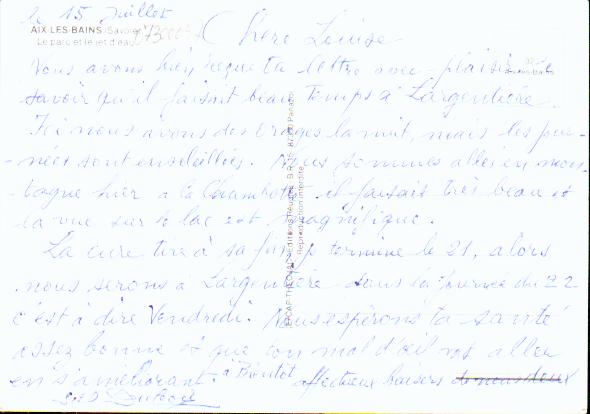 le 15 Juillet
AIX-LES-BAINS (Savoie)
Le parc et le jet d'eau
Chère Louise
Nous avons bien reçue ta lettre avec plaisir de
savoir qu'il faisait beau temps à Largentière.
Ici nous avons des orages la nuit, mais les jour-
-nées sont ensoleillées. Nous sommes allés en mon-
-tagne hier a la Chambotte il faisait très beau et
la vue sur le lac est magnifique.
La cure tire à sa fin, je termine le 21, alors
nous serons à Largentière dans la journée du 22
c'est à dire Vendredi. Nous espérons ta santé
assez bonne et que ton mal d'œil va aller
en s'améliorant. a Bientôt affectueux baisers de nous deux
Reproduction interdite